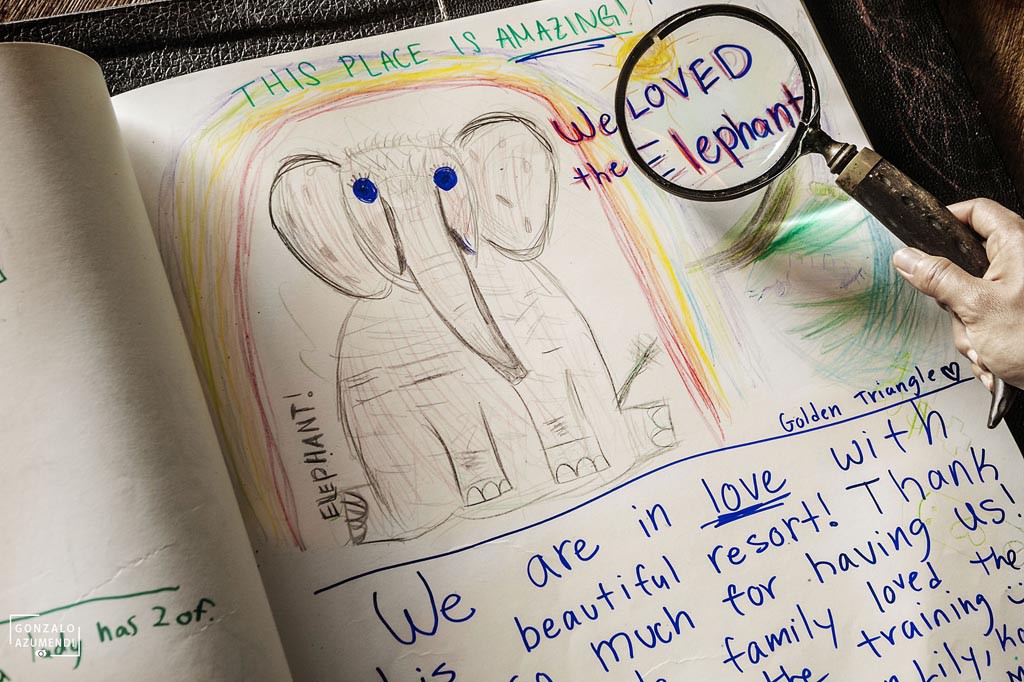 THIS PLACE IS AMAZING!
We LOVED
the Elephant
ELEPHANT!
Golden Triangle♡
We are in love with
this beautiful resort! Thank
so much for having us!
family loved the
the training
Lily,
has 2 of.
GONZALO
AZUMENDI